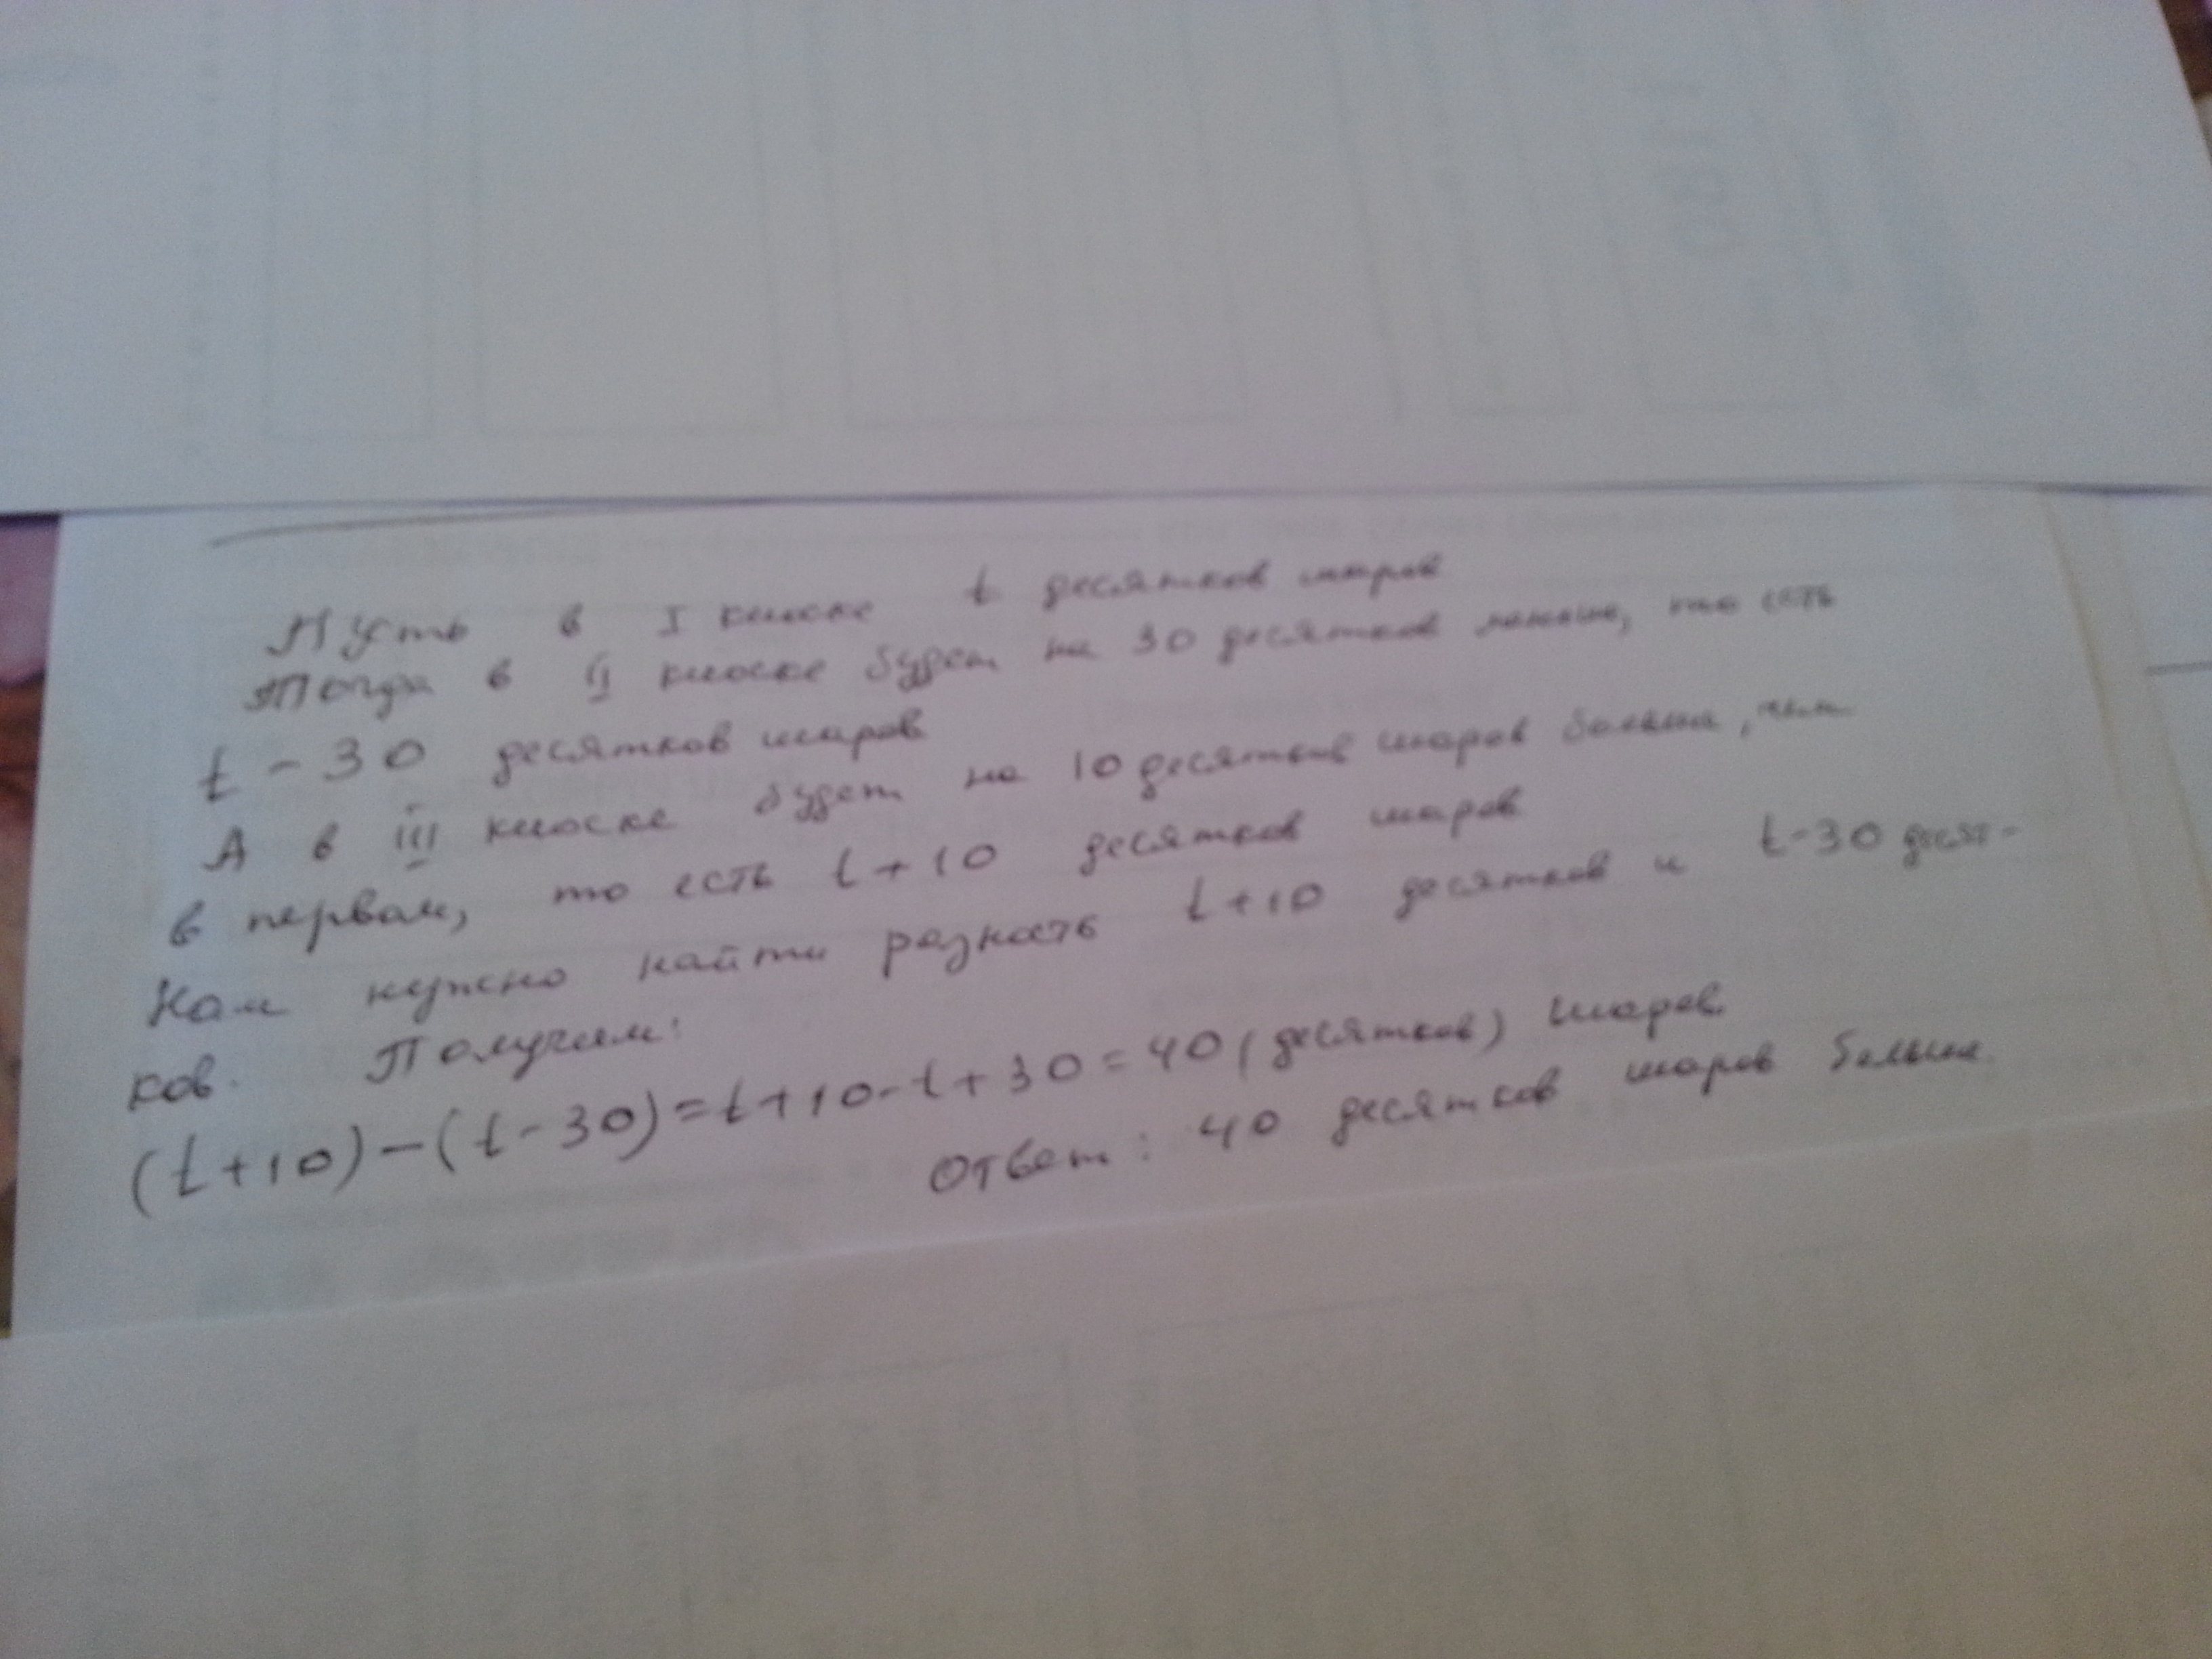 Пусть в I киоске t десятков шаров
Тогда в II киоске будет на 30 десятков меньше, то есть
t - 30 десятков шаров
А в III киоске будет на 10 десятков шаров больше, чем
в первом, то есть t + 10 десятков шаров
Нам нужно найти разность t+10 десятков и t-30 десят-
ков. Получим:
(t+10)-(t-30)=t+10-t+30=40 (десятков) шаров.
Ответ: 40 десятков шаров больше